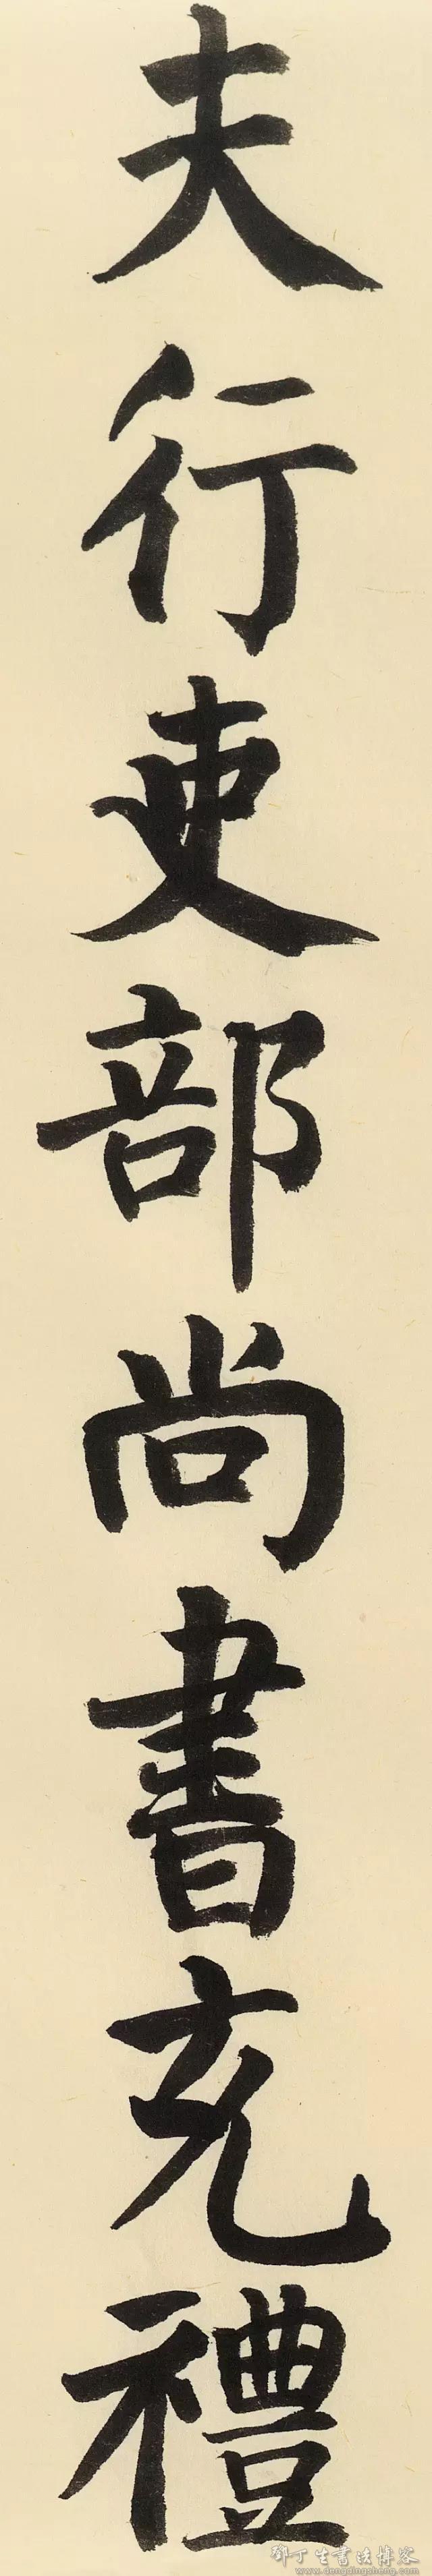 夫行吏部尚書充禮
鄧丁生書法博客
www.dengdingsheng.com